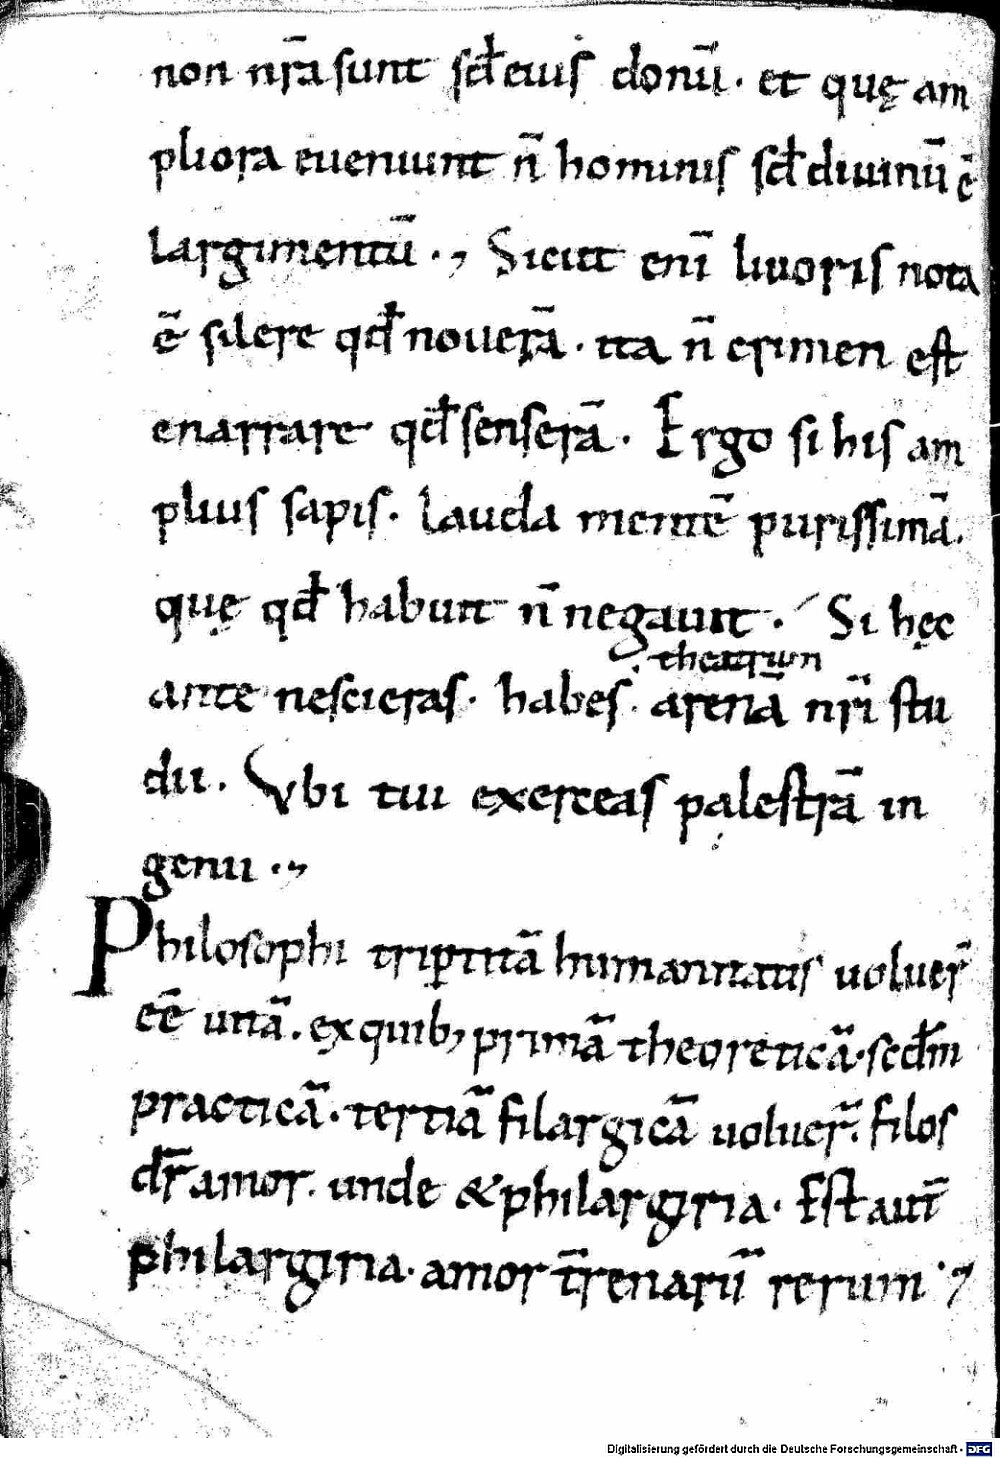 non nr̄a sunt sꝺ̄ eius donū· et quę am
pliora eueniunt n̄ hominis sꝺ̄ diuinū ē
largimentū·, Sicut enī liuoris nota
ē silere qđ nouerā· ita n̄ crimen est
enarrare qđ senserā· Ergo si his am
plius sapis· lauda mentē purissimā·
quę qđ habuit n̄ negauit· Si hęc
theatrum
ante nescieras· habes· arenā nr̄i stu
dii· Vbi tui exerceas palestrā in
genii·,
Philosophi triꝑtitā humanitatis uoluer̄
eē uitā· ex quib; primā theoreticā· scdm̄
practicā· tertiā filargicā uoluer̄· filos
dr̄ amor· unde & philargiria· Est aut̄
philargiria· amor t̄renarū rerum·,
Digitalisierung gefördert durch die Deutsche Forschungsgemeinschaft - DFG